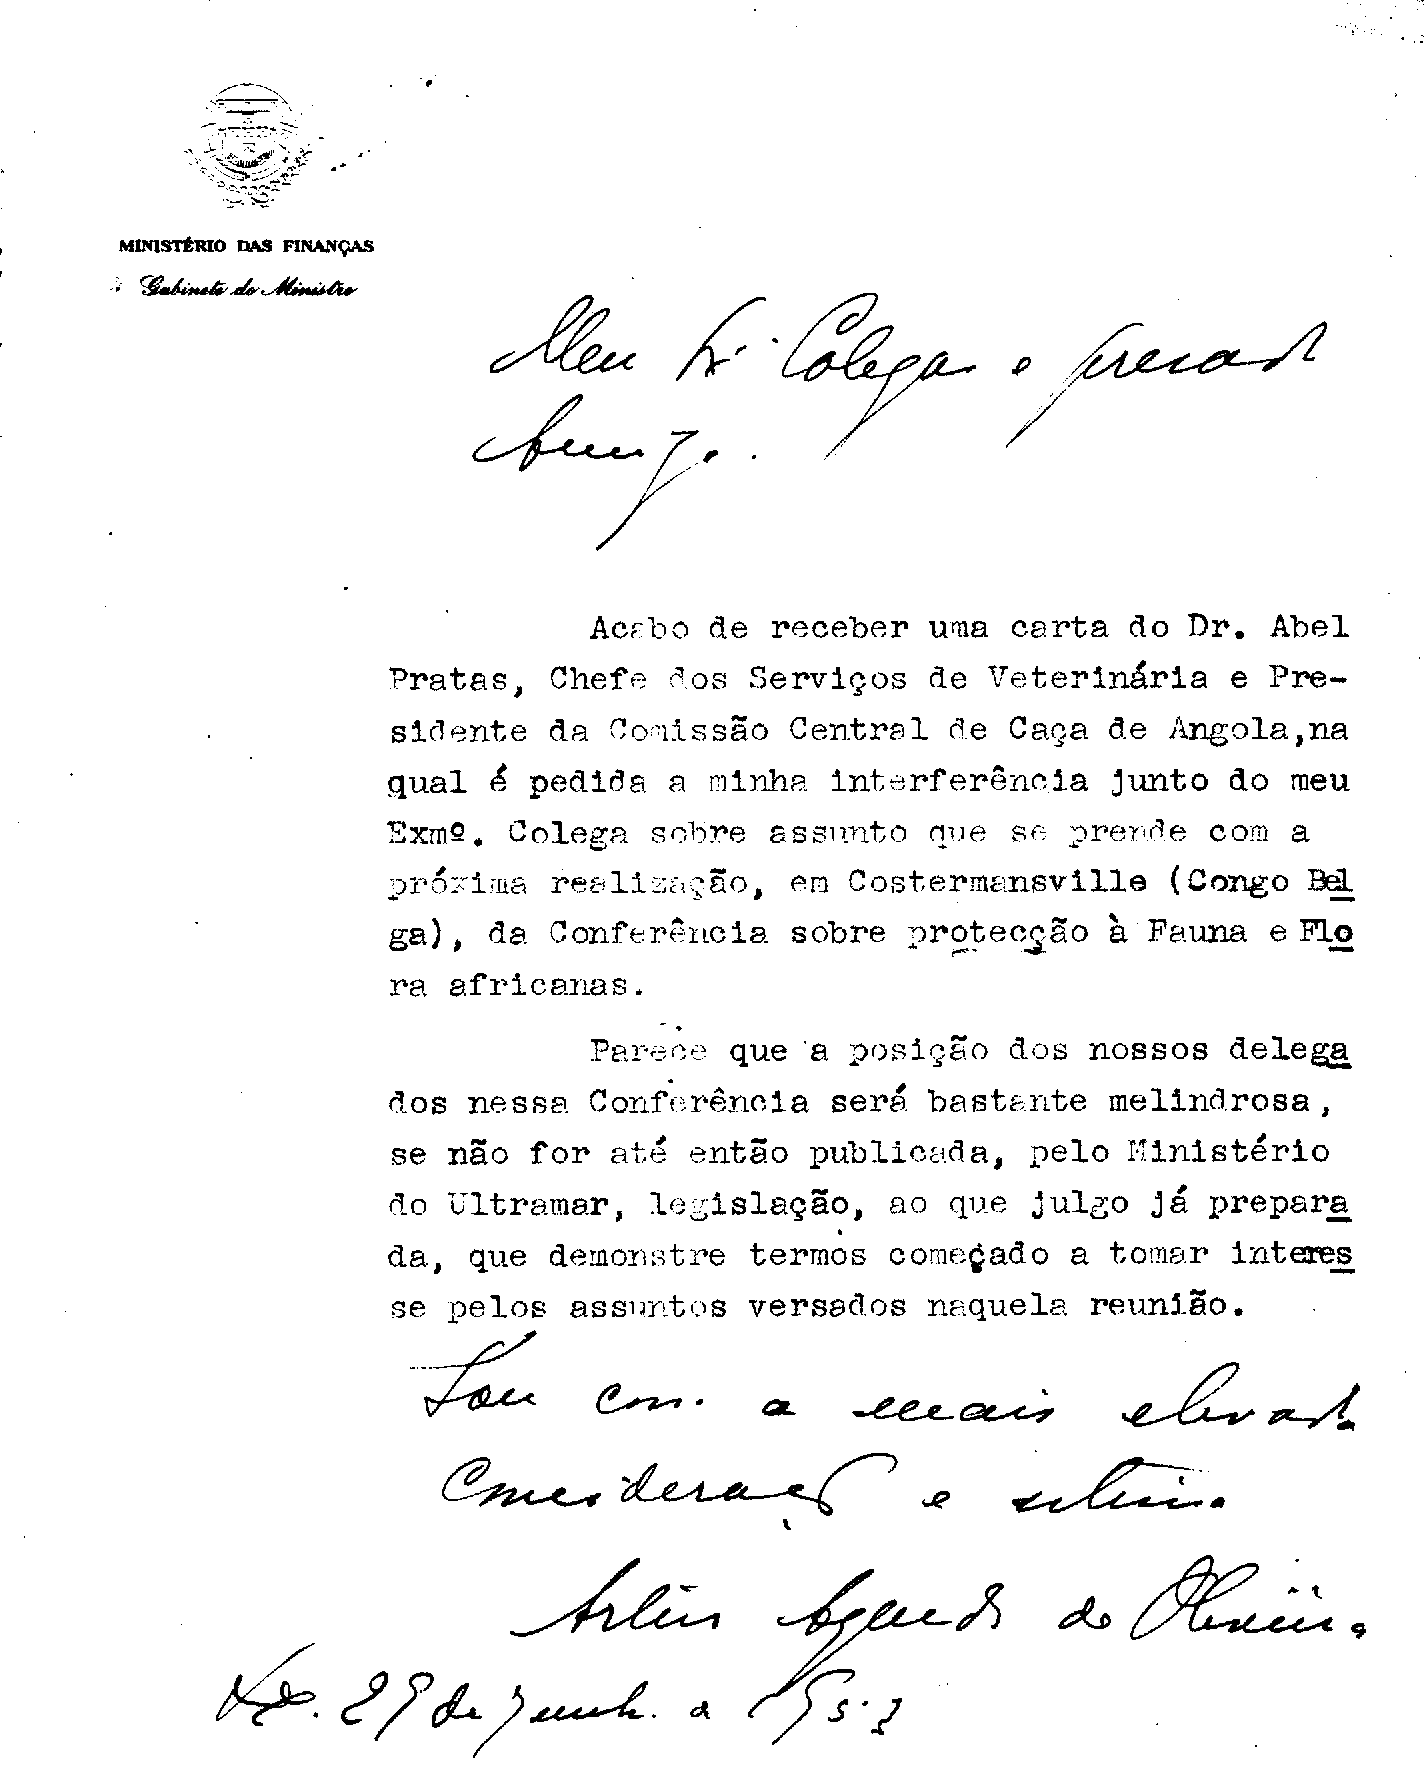 MINISTÉRIO DAS FINANÇAS
Gabinete do Ministro
Meu Exº Colega e prezado
Amigo.
Acabo de receber uma carta do Dr. Abel
Pratas, Chefe dos Serviços de Veterinária e Pre-
sidente da Comissão Central de Caça de Angola,na
qual é pedida a minha interferência junto do meu
Exmº. Colega sobre assunto que se prende com a
próxima realização, em Costermansville (Congo Bel
ga), da Conferência sobre protecção à Fauna e Flo
ra africanas.
Parece que a posição dos nossos delega
dos nessa Conferência será bastante melindrosa,
se não for até então publicada, pelo Ministério
do Ultramar, legislação, ao que julgo já prepara
da, que demonstre termos começado a tomar interes
se pelos assuntos versados naquela reunião.
Sou com a mais elevada
consideração e estima
Artur Águedo de Oliveira
Lx. 29 de Junho de 1953